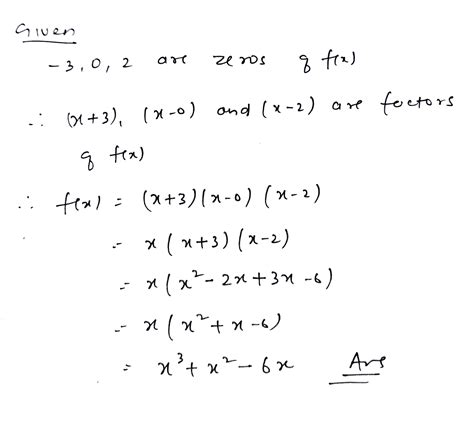 Given
-3, 0, 2 are zeros of f(x)
∴ (x+3), (x-0) and (x-2) are factors
of f(x)
∴ f(x) = (x+3)(x-0)(x-2)
= x(x+3)(x-2)
= x(x²-2x+3x-6)
= x(x²+x-6)
= x³+x²-6x Ans